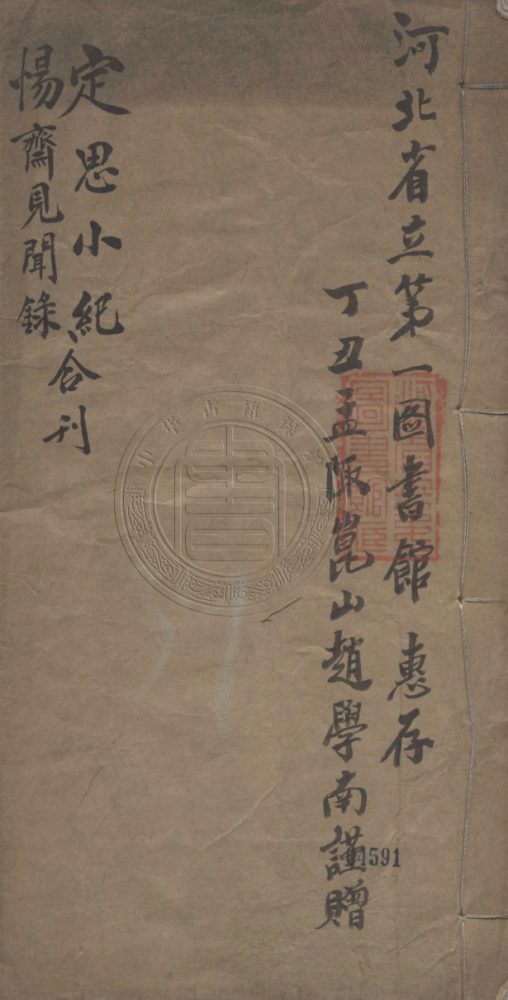 河北省立第一圖書館 惠存
丁丑孟陬崑山趙學南謹贈
定思小紀
惕齋見聞錄、合刊
1591